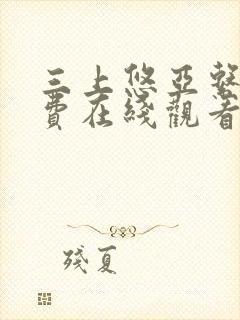 三上悠亞整
費在綫觀看
殘夏